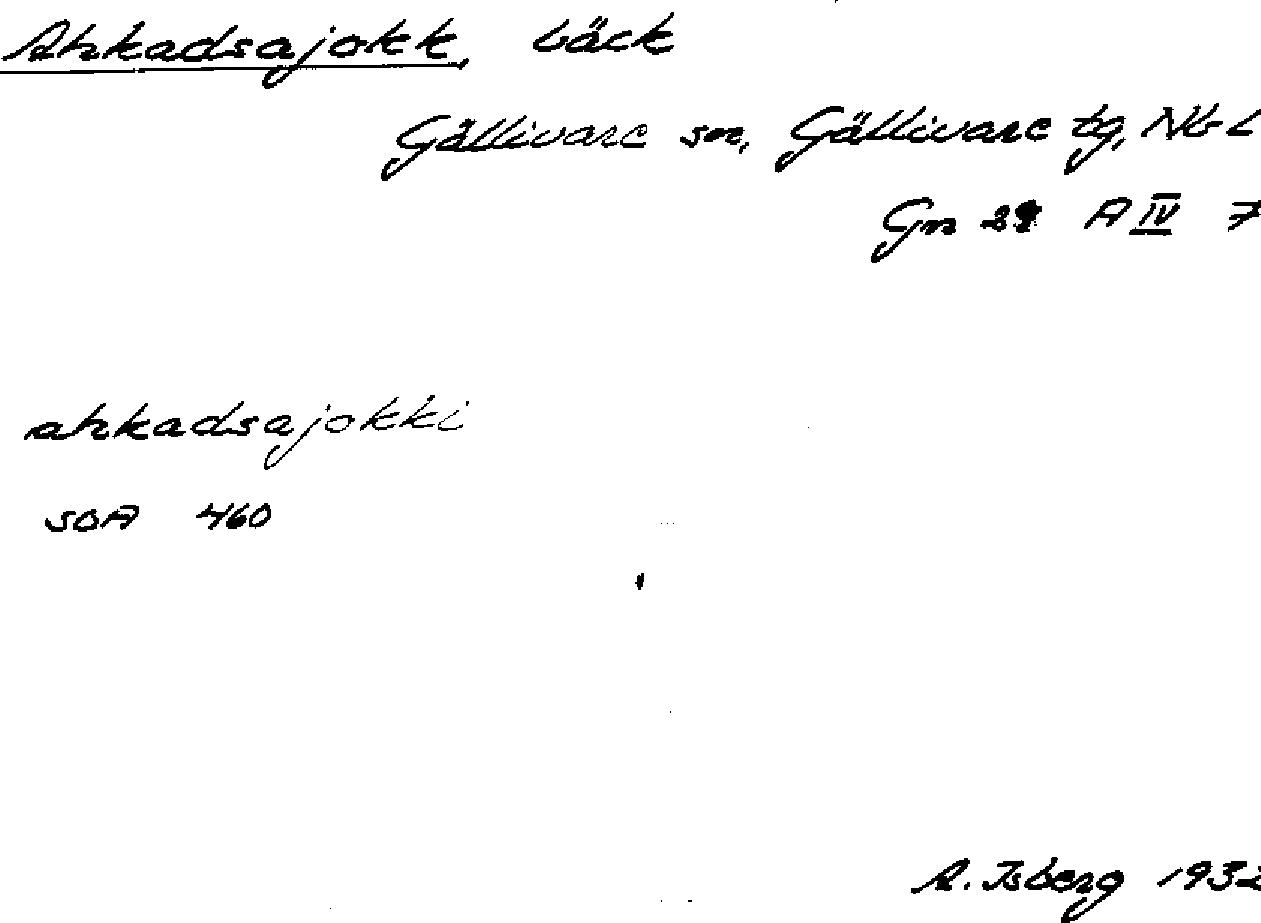 Ahkadsajokk, bäck
Gällivare sn, Gällivare tg, Nb L
Gn 28 A IV 7
ahkadsajokki
SOA 460
A. Isberg 1932